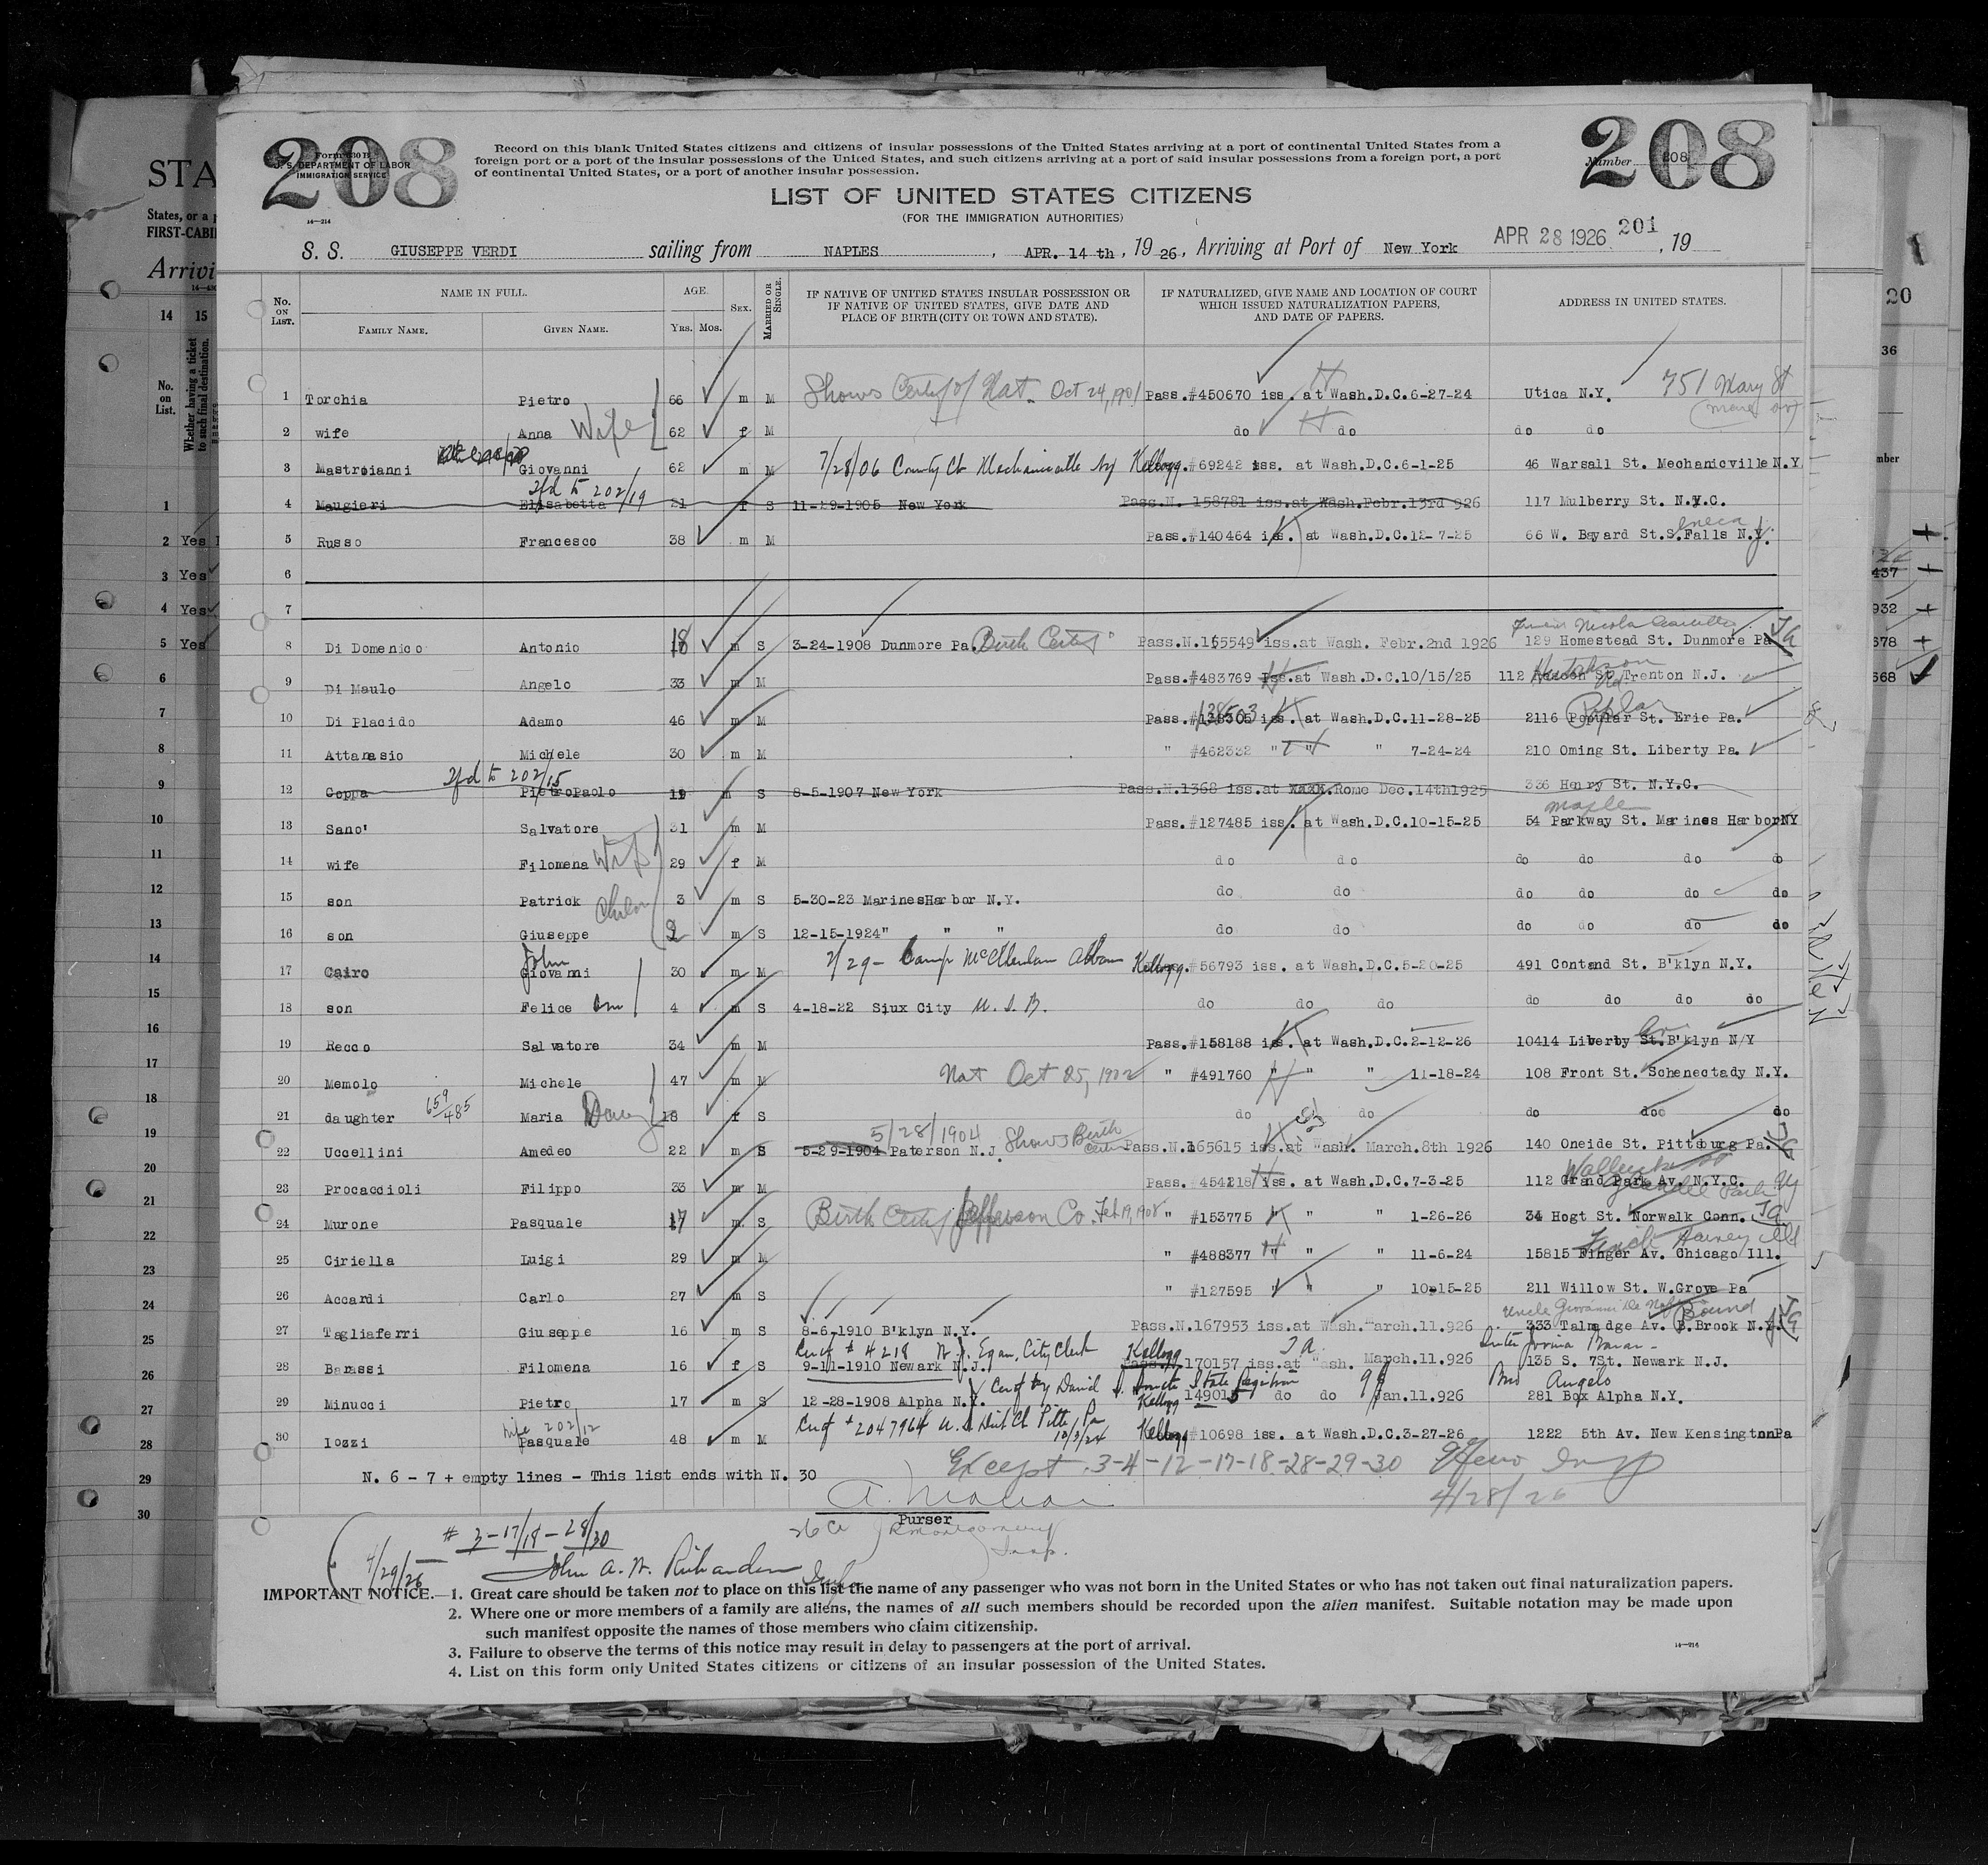 208
208
Form 630 B
U. S. DEPARTMENT OF LABOR
IMMIGRATION SERVICE
14—214
Record on this blank United States citizens and citizens of insular possessions of the United States arriving at a port of continental United States from a
foreign port or a port of the insular possessions of the United States, and such citizens arriving at a port of said insular possessions from a foreign port, a port
of continental United States, or a port of another insular possession.
Number 208
LIST OF UNITED STATES CITIZENS
(FOR THE IMMIGRATION AUTHORITIES)
S. S. GIUSEPPE VERDI sailing from NAPLES , APR. 14 th , 19 26, Arriving at Port of New York APR 28 1926 201 , 19
No. ON LIST. NAME IN FULL. FAMILY NAME. GIVEN NAME. AGE. Yrs. Mos. SEX. MARRIED OR SINGLE. IF NATIVE OF UNITED STATES INSULAR POSSESSION OR IF NATIVE OF UNITED STATES, GIVE DATE AND PLACE OF BIRTH (CITY OR TOWN AND STATE). IF NATURALIZED, GIVE NAME AND LOCATION OF COURT WHICH ISSUED NATURALIZATION PAPERS, AND DATE OF PAPERS. ADDRESS IN UNITED STATES.
1 Torchia Pietro 66 m M Shows Certif of Nat. Oct 24, 1901 Pass.#450670 iss. at Wash.D.C.6-27-24 Utica N.Y. 751 Mary St
2 wife Anna Wife 62 f M do do do do
3 Mastroianni Giovanni 62 m M 7/28/06 County Ct Mechanicville Ny Kellogg.#69242 iss. at Wash.D.C.6-1-25 46 Warsall St. Mechanicville N.Y.
4 Maugieri Elisabetta tfd to 202/19 21 f S 11-29-1905 New York Pass.N. 158781 iss.at Wash.Febr.13rd 926 117 Mulberry St. N.Y.C.
5 Russo Francesco 38 m M Pass.#140464 iss. at Wash.D.C.12-7-25 66 W. Bayard St.S.Falls N.Y. Seneca
6
7
8 Di Domenico Antonio 18 m S 3-24-1908 Dunmore Pa. Birth Certif Pass.N.165549 iss.at Wash. Febr.2nd 1926 129 Homestead St. Dunmore Pa
9 Di Maulo Angelo 33 m M Pass.#483769 iss.at Wash.D.C.10/15/25 112 Hudson St Trenton N.J.
10 Di Placido Adamo 46 m M Pass.#138305 iss. at Wash.D.C.11-28-25 2116 Popular St. Erie Pa. Poplar
11 Attanasio Michele 30 m M " #462332 " " " 7-24-24 210 Oming St. Liberty Pa.
12 Coppa PietroPaolo tfd to 202/15 19 m S 8-5-1907 New York Pass.N.1368 iss.at Rome Dec.14th1925 336 Henry St. N.Y.C.
13 Sano' Salvatore 31 m M Pass.#127485 iss. at Wash.D.C.10-15-25 54 Parkway St. Marines HarborNY maple
14 wife Filomena Wife 29 f M do do do do do do
15 son Patrick 3 m S 5-30-23 MarinesHarbor N.Y. do do do do do do
16 son Giuseppe 2 m S 12-15-1924" " " do do do do do do
17 Cairo Giovanni John 30 m M Camp McClellan Kellogg.#56793 iss. at Wash.D.C.5-20-25 491 Contand St. B'klyn N.Y.
18 son Felice 4 m S 4-18-22 Siux City U.S.A. do do do do do do do
19 Recco Salvatore 34 m M Pass.#158188 iss. at Wash.D.C.2-12-26 10414 Liberty St.B'klyn N/Y
20 Memolo Michele 47 m M Nat Oct 25, 1902 " #491760 " " " 11-18-24 108 Front St. Schenectady N.Y.
21 daughter 659/485 Maria 18 f S do do do do do
22 Uccellini Amedeo 22 m S 5/28/1904 5-29-1904 Paterson N.J. Shows Birth Certif Pass.N.165615 iss.at Wash. March.8th 1926 140 Oneide St. Pittsburg Pa.
23 Procaccioli Filippo 33 m M Pass. #454218 iss. at Wash.D.C.7-3-25 112 Grand Park Av. N.Y.C.
24 Murone Pasquale 17 m S Birth Certif Jefferson Co. Feb 19, 1908 " #153775 " " 1-26-26 34 Hogt St. Norwalk Conn.
25 Ciriella Luigi 29 m M " #488377 " " " 11-6-24 15815 Finger Av. Chicago Ill.
26 Accardi Carlo 27 m S " #127595 " " " 10-15-25 211 Willow St. W.Grove Pa
27 Tagliaferri Giuseppe 16 m S 8-6-1910 B'klyn N.Y. Pass.N.167953 iss.at Wash.March.11.926 333 Talmadge Av. B.Brook N.Y. Bound
28 Barassi Filomena 16 f S 9-11-1910 Newark N.J. Certf # 4218 Egan, City Clerk Kellogg 170157 iss.at Wash. March.11.926 135 S. 7St. Newark N.J.
29 Minucci Pietro 17 m S 12-28-1908 Alpha N.Y. Kellogg 149015 do do Jan.11.926 281 Box Alpha N.Y. Angelo
30 Iozzi Pasquale wife 202/12 48 m M Certf #2047964 U.S. Dist Ct Pitts Pa Kellogg #10698 iss. at Wash.D.C.3-27-26 1222 5th Av. New KensingtonPa
N. 6 - 7 + empty lines - This list ends with N. 30
Except 3-4-12-17-18-28-29-30
4/28/26
Purser
# 3-17/18-28/30
4/29/26 John A. W. Richardson Insp
IMPORTANT NOTICE.—1. Great care should be taken not to place on this list the name of any passenger who was not born in the United States or who has not taken out final naturalization papers.
2. Where one or more members of a family are aliens, the names of all such members should be recorded upon the alien manifest. Suitable notation may be made upon
such manifest opposite the names of those members who claim citizenship.
3. Failure to observe the terms of this notice may result in delay to passengers at the port of arrival.
4. List on this form only United States citizens or citizens of an insular possession of the United States.
14—214